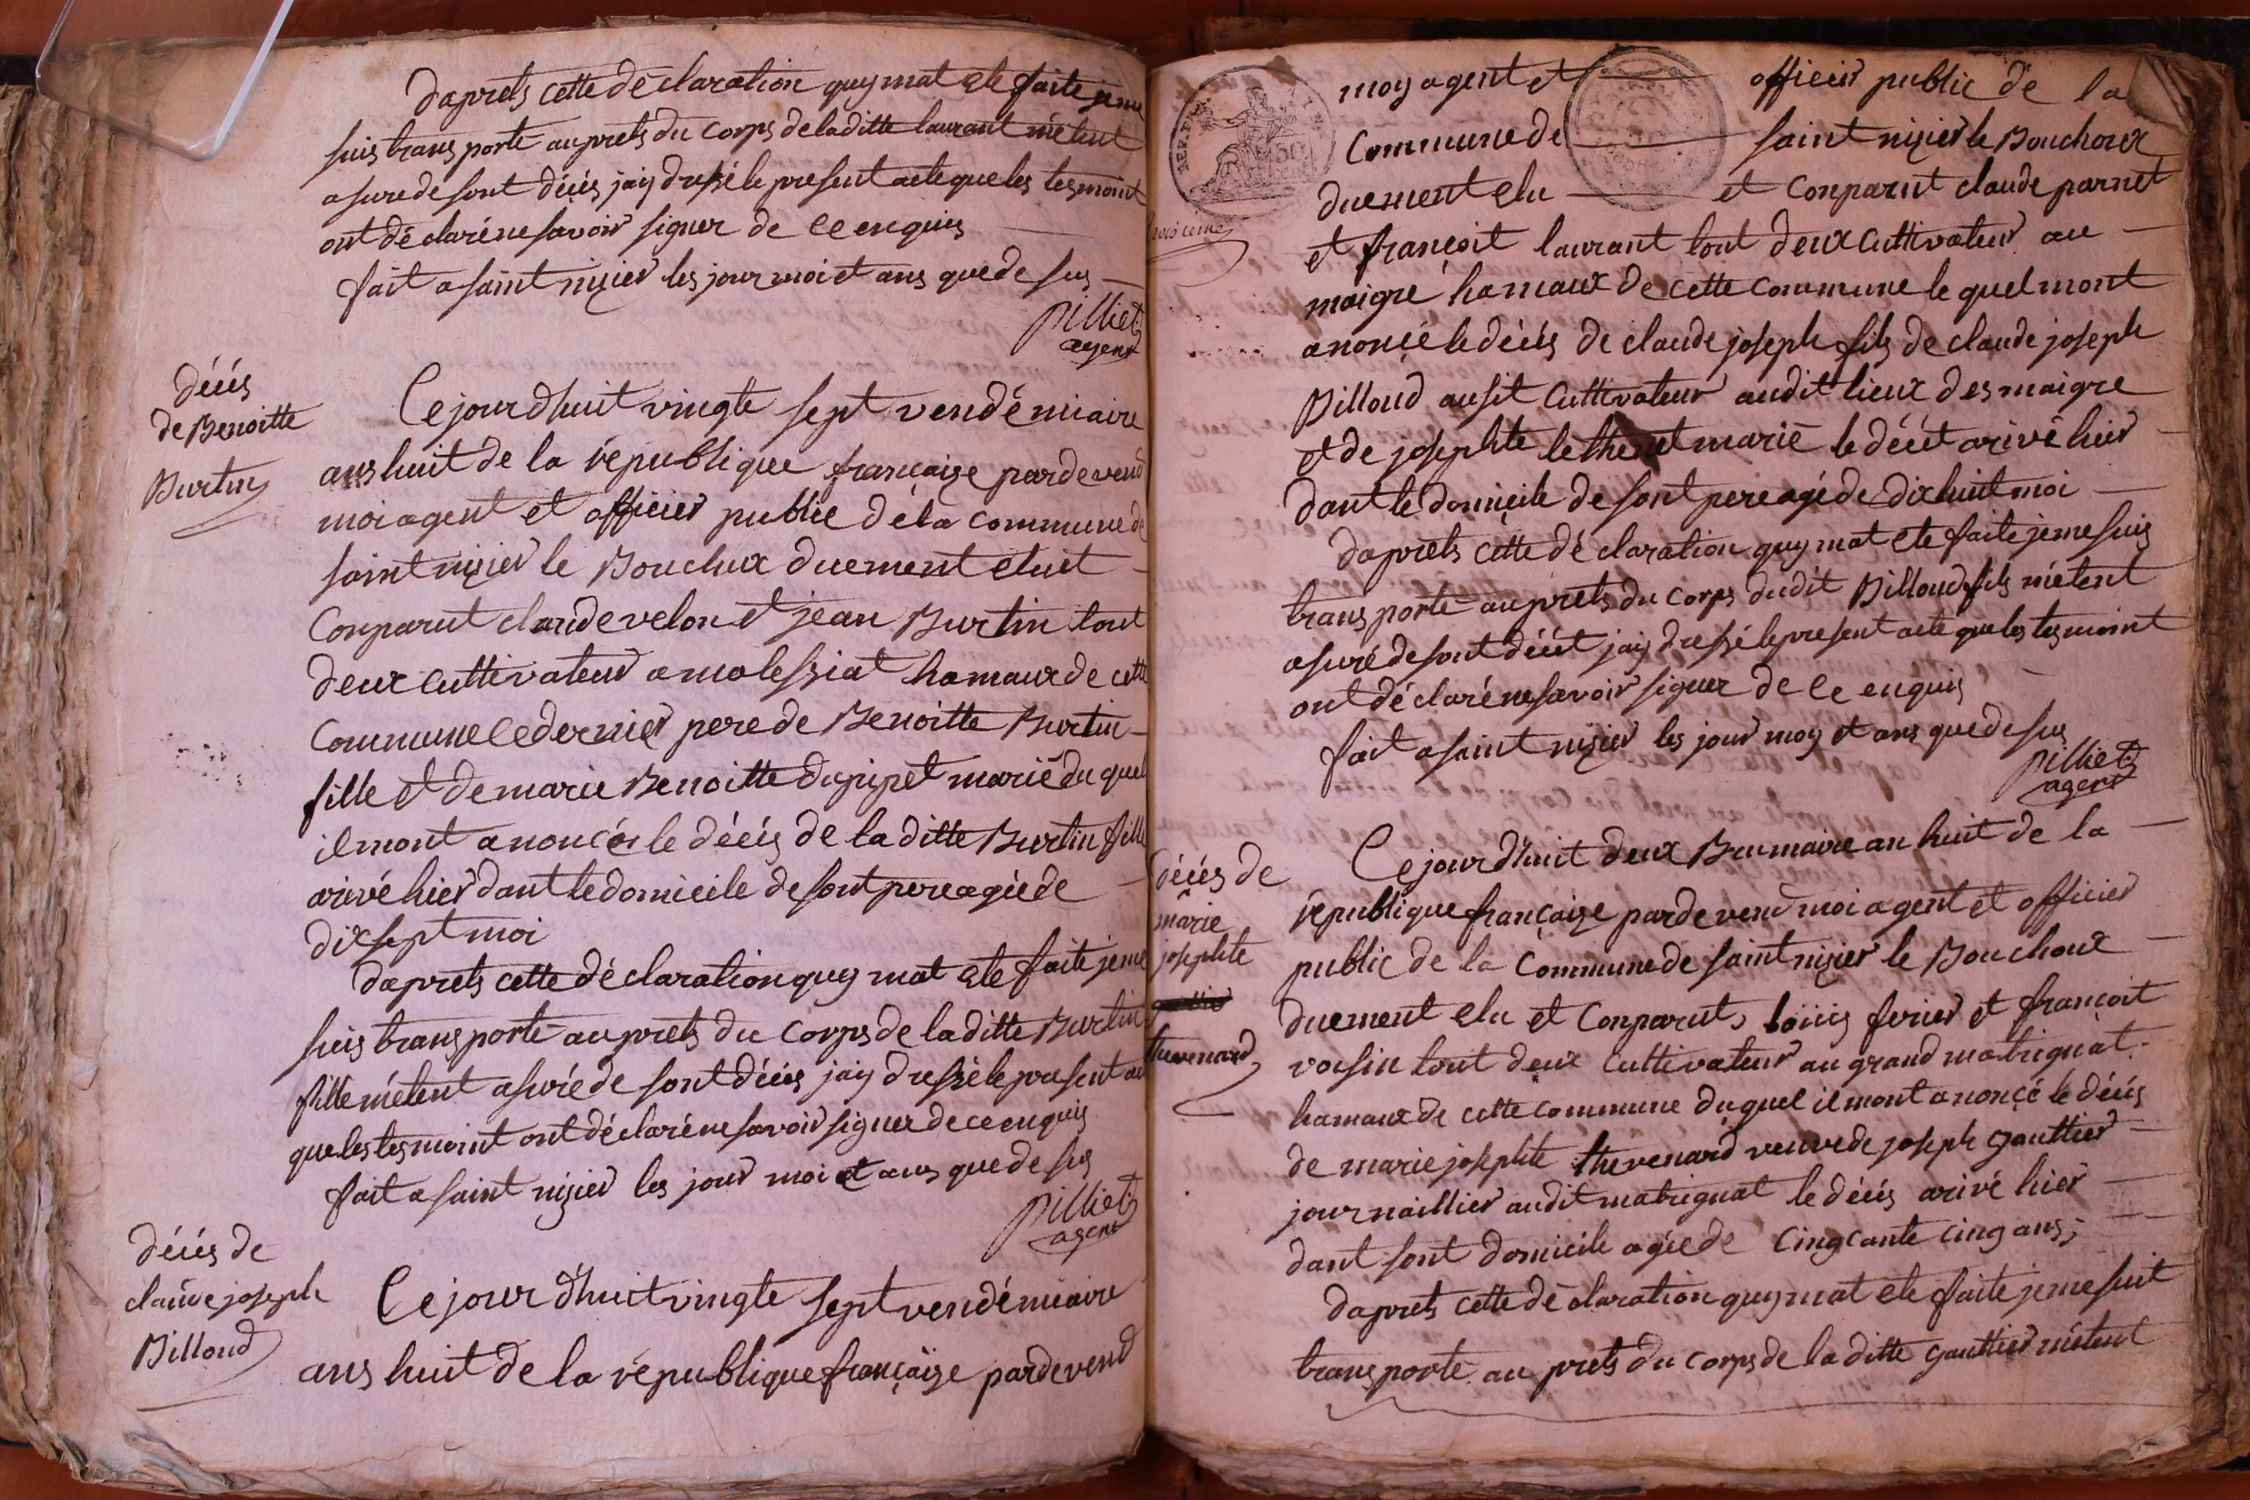 daprets cette déclaration quy mat ete faite jeme
suis transporté auprets du corps deladitte laurant métent
asure de sont décés jaiy dressé le present acte que les tesmoint
ont déclaré ne savoir signer de ce enquis
fait a saint nizier les jour moi et ans que de sus
pilliet
agent
décés
de Benoitte
Burtin
Ce jourdhuit vingte sept vendémiaire
ans huit de la république française pardevend
moi agent et officier public de la commune de
saint nizier le Bouchux duement eluit
Conparut claude velon et jean Burtin tout
deux cultivateur a molessiat hamaux de cette
commune ce dernier pere de Benoitte Burtin
fille et de marie Benoitte dupipet marié du quel
il mont anoncée le décés de la ditte Burtin fille
arivé hier dant le domicile de sont pere agée de
dix sept moi
daprets cette déclaration quy mat ete faite jeme
suis transporté auprets du corps de la ditte Burtin
fille métent asuré de sont décés jaiy dressé le present acte
que les tesmoint ont déclaré ne savoir signer de ce enquis
fait a saint nizier les jour moi et ans que de sus
pilliet
agent
décés de
claude joseph
Billoud
Ce jour dhuit vingte sept vendémiaire
ans huit de la république française pardevend
REP. FRA
50
moy agent et officier public de la
commune de saint nizier le Bouchoux
duement elu et conparut claude parnet
et françoit laurant tout deux cultivateur au
maigre hamaux de cette commune le quel mont
anoncé le décés de claude joseph fils de claude joseph
Billoud ausit cultivateur audit lieux des maigre
et de josephte marié le décét arivé hier
dant le domicile de sont pere agé de dix huit moi
daprets cette déclaration quy mat ete faite jeme suis
transporté auprets du corps dudit Billoud fils métent
asuré de sont décét jaiy dressé le present acte que les tesmoint
ont déclaré ne savoir signer de ce enquis
fait a saint nizier les jour moy et ans que de sus
pilliet
agent
décés de
marie
josephte
thevenard
Ce jour dhuit deux Brumaire an huit de la
république française pardevend moi agent et officier
public de la commune de saint nizier le Bouchoux
duement elu et conparut, louis ferier et françoit
voisin tout deux cultivateur au grand matrignat
hamaux de cette commune duquel il mont anoncé le décés
de marie josephte thevenard veuve de joseph gauttier
journaillier audit matrignat le décés arivé hier
dant sont domicile agée de cinqcante cinq ans;
daprets cette déclaration quy mat ete faite jeme suit
transporté au prets du corps de la ditte gauttier métent